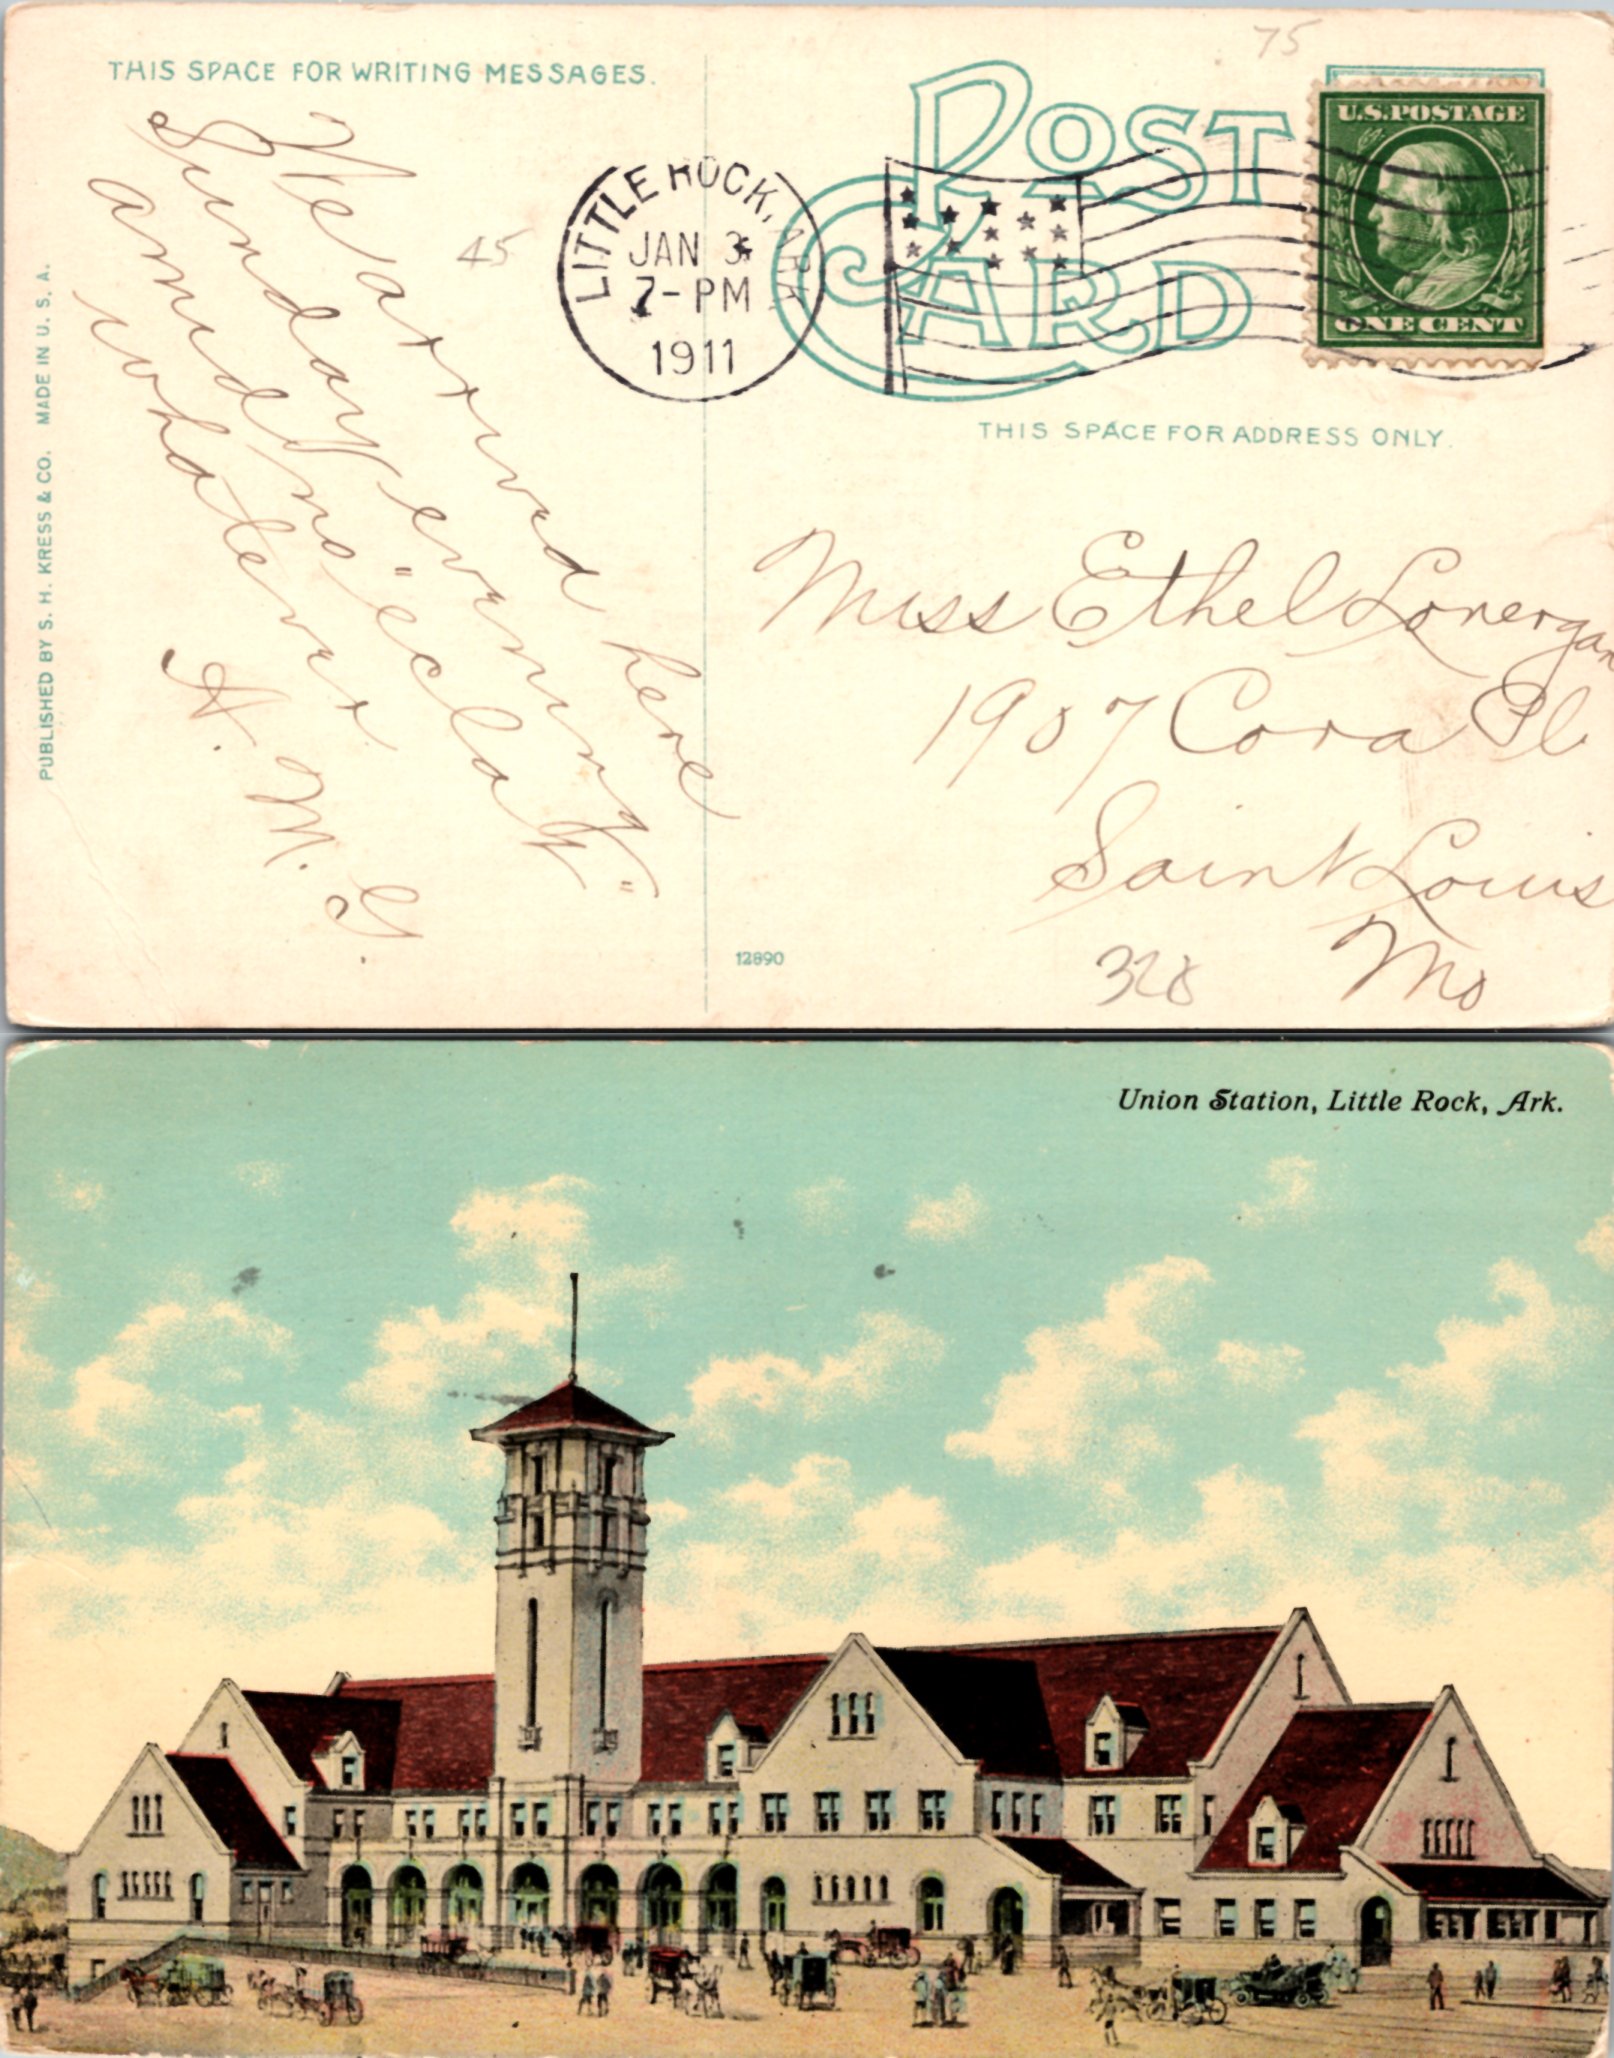 75
THIS SPACE FOR WRITING MESSAGES.
POST
CARD
U.S. POSTAGE
ONE CENT
LITTLE ROCK, ARK
JAN 3
7-PM
1911
THIS SPACE FOR ADDRESS ONLY.
45
We arrived here
Sunday evening
amid "no" eclat"
whatever
A. M. G.
Miss Ethel Lonergan
1907 Cora Pl
Saint Louis
Mo
328
12890
PUBLISHED BY S. H. KRESS & CO. MADE IN U. S. A.
Union Station, Little Rock, Ark.